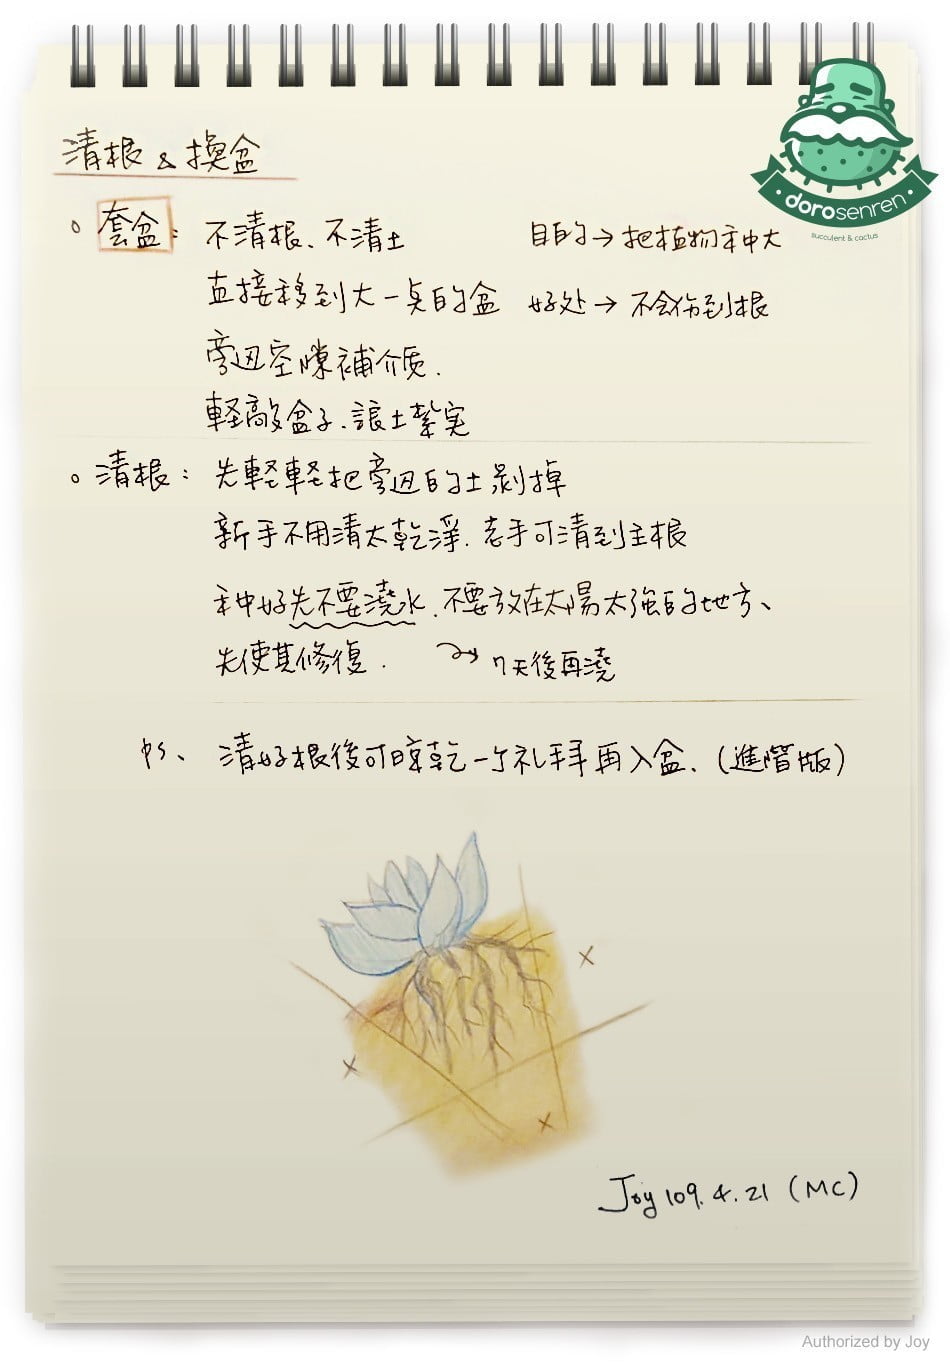 dorosenren
succulent & cactus
清根 & 換盆
套盆: 不清根、不清土 目的→把植物种大
直接移到大一点的盆 好处→不会伤到根
旁边空隙補介质.
軽敲盆子.讓土紮实
清根: 先軽軽把旁边的土剝掉
新手不用清太乾淨.老手可清到主根
种好先不要澆水.不要放在太陽太強的地方、
先使其修復. 7天後再澆
PS、 清好根後可晾乾一个礼拜再入盆.(進階版)
Joy 109.4.21 (MC)
Authorized by Joy